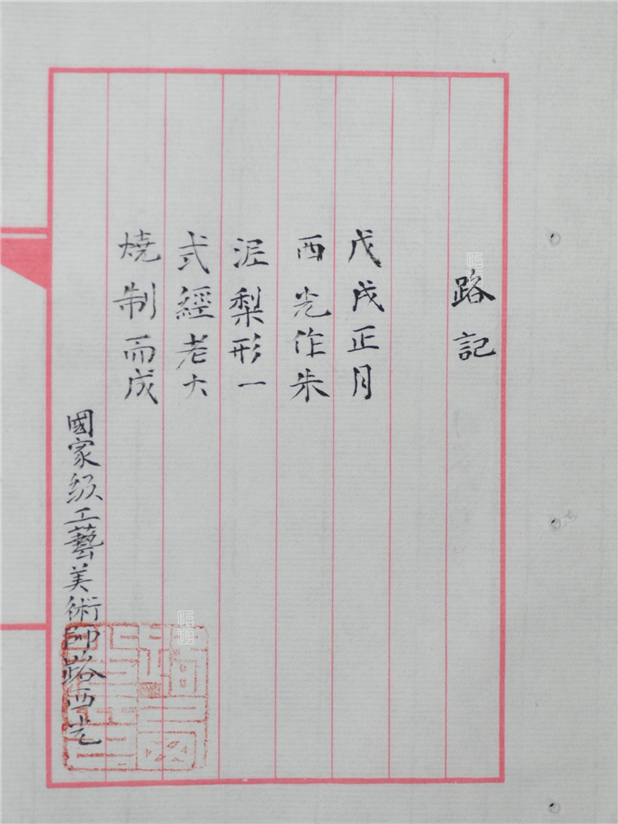 路記
戊戌正月
西光作朱
泥梨形一
式經老大
燒制而成
國家級工藝美術師路西光